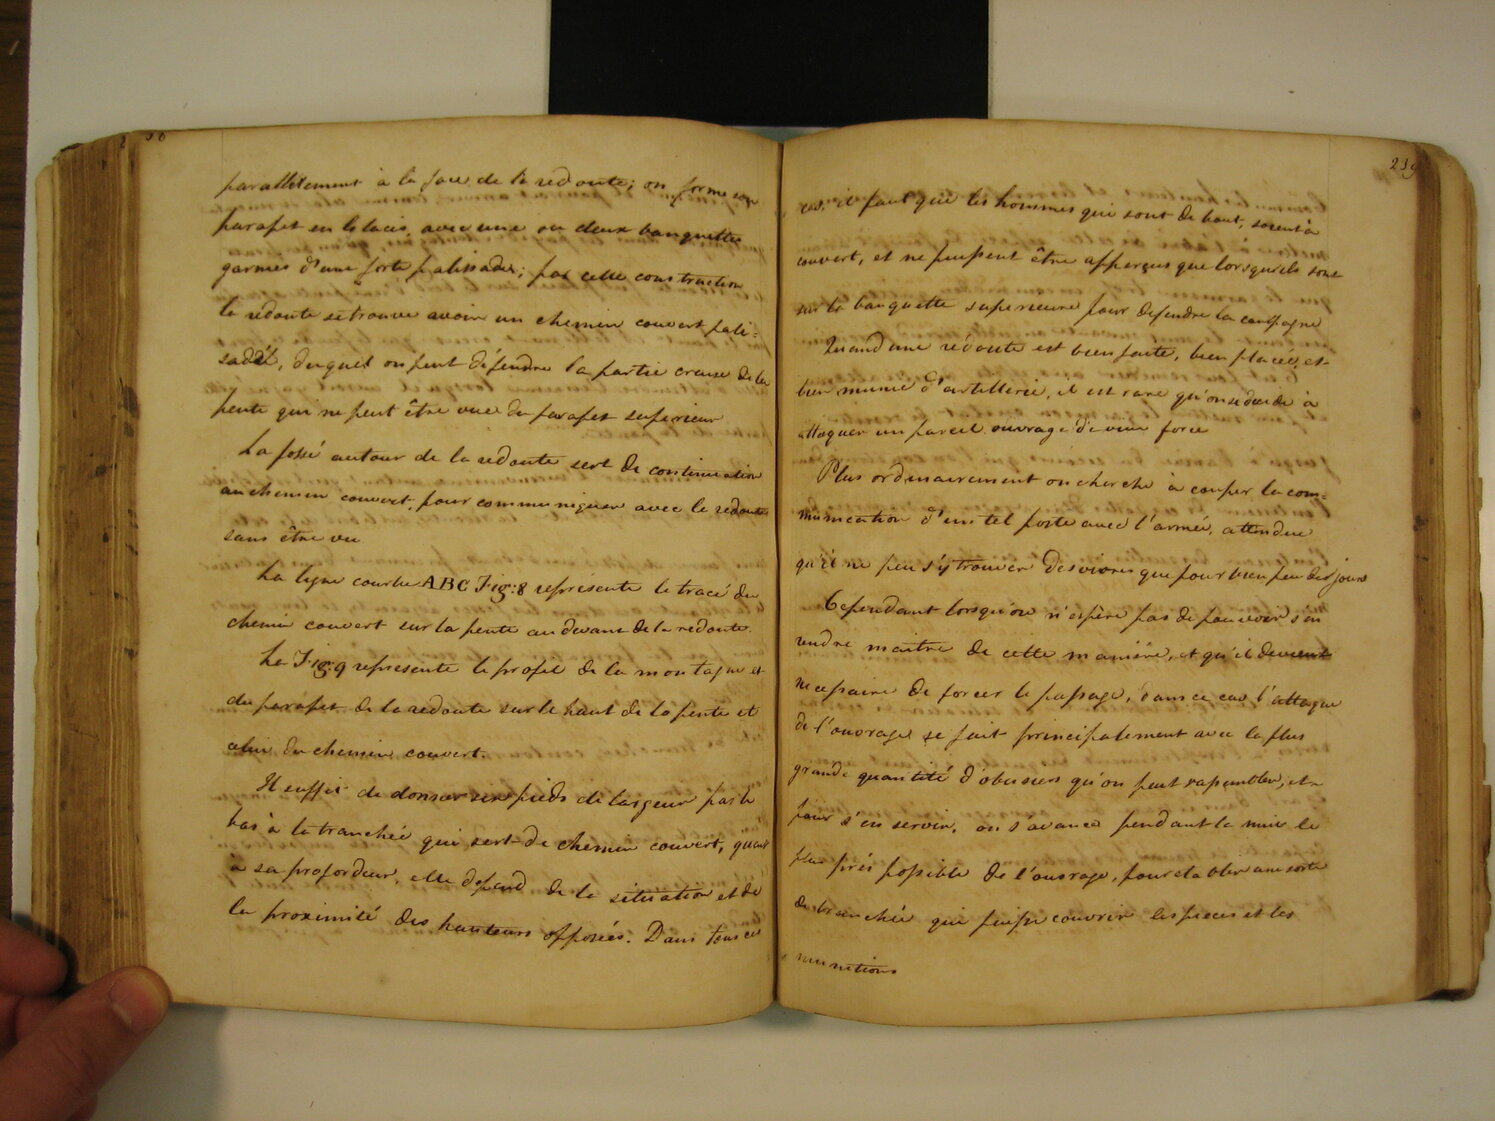 parallèlement à la face de la redoute; on forme son
parapet en glacis, avec une ou deux banquettes
garnies d'une forte palissade; par cette construction
la redoute se trouve avoir un chemin couvert pali-
sadé, duquel on peut défendre la partie creuse de la
pente qui ne peut être vue du parapet superieur
Le fossé autour de la redoute sert de continuation
au chemin couvert, pour communiquer avec la redoute
sans être vu
La ligne courbe ABC Fig: 8 représente le tracé du
chemin couvert sur la pente au devant de la redoute.
La Fig: 9 represente le profil de la montagne et
du parapet de la redoute sur le haut de la pente et
celui du chemin couvert.
Il suffit de donner six pieds de largeur par le
bas à la tranchée qui sert de chemin couvert, quant
à sa profondeur, elle depend de la situation et de
la proximité des hauteurs opposées. Dans tous ces
239
cas, il faut que les hommes qui sont de bout, soient à
couvert, et ne puissent être apperçus que lorsqu'ils sont
sur la banquette superieure pour defendre la campagne
Quand une redoute est bien faite, bien placée, et
bien munie d'artillerie, il est rare qu'on se decide à
attaquer un pareil ouvrage de vive force
Plus ordinairement on cherche à couper la com=
munication d'un tel poste avec l'armée, attendu
qu'il ne peu s'y trouver des vivres que pour bien peu des jours
Cependant lorsqu'on n'espère pas de pouvoir s'en
rendre maitre de cette manière, et qu'il devient
necessaire de forcer le passage, dans ce cas l'attaque
de l'ouvrage se fait principalement avec la plus
grande quantité d'obusiers qu'on peut rassembler, et
pour s'en servir, on s'avance pendant la nuit le
plus près possible de l'ouvrage, pour etablir une sorte
de tranchée qui puisse couvrir les pieces et les
munitions